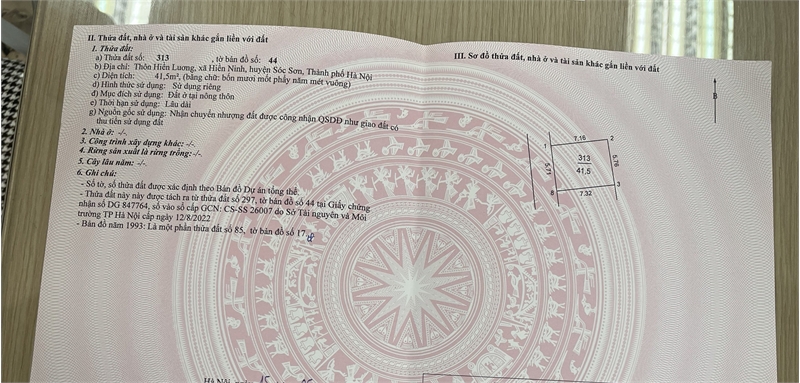 II. Thửa đất, nhà ở và tài sản khác gắn liền với đất
1. Thửa đất:
a) Thửa đất số: 313 , tờ bản đồ số: 44
b) Địa chỉ: Thôn Hiền Lương, xã Hiền Ninh, huyện Sóc Sơn, Thành phố Hà Nội
c) Diện tích: 41,5m², (bằng chữ: bốn mươi mốt phẩy năm mét vuông)
d) Hình thức sử dụng: Sử dụng riêng
đ) Mục đích sử dụng: Đất ở tại nông thôn
e) Thời hạn sử dụng: Lâu dài
g) Nguồn gốc sử dụng: Nhận chuyển nhượng đất được công nhận QSDĐ như giao đất có
thu tiền sử dụng đất
2. Nhà ở: -/-
3. Công trình xây dựng khác: -/-
4. Rừng sản xuất là rừng trồng: -/-
5. Cây lâu năm: -/-
6. Ghi chú:
- Số tờ, số thửa đất được xác định theo Bản đồ Dự án tổng thể.
- Thửa đất này được tách ra từ thửa đất số 297, tờ bản đồ số 44 tại Giấy chứng
nhận số DG 847764, số vào sổ cấp GCN: CS-SS 26007 do Sở Tài nguyên và Môi
trường TP Hà Nội cấp ngày 12/8/2022
- Bản đồ năm 1993: Là một phần thửa đất số 85, tờ bản đồ số 17
III. Sơ đồ thửa đất, nhà ở và tài sản khác gắn liền với đất
B
1 7.16 2
5.71 313 5.76
41.5
8 7.32 3
Hà Nội, ngày 15